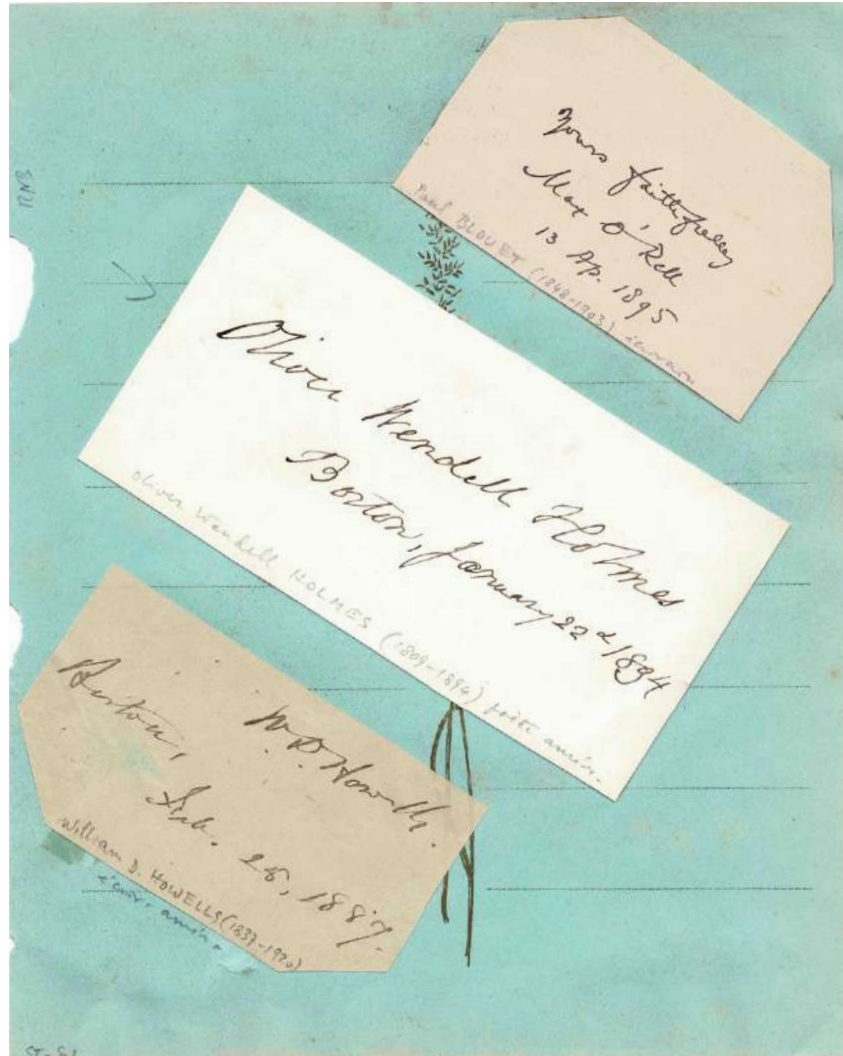 RNB
Yours faithfully
Max O'Rell
13 Ap. 1895
Paul BLOUET (1848-1903) écrivain
Oliver Wendell Holmes
Boston, January 22d 1894
Oliver Wendell HOLMES (1809-1894) poète améric.
W. D. Howells.
Boston,
Feb. 25, 1887.
William D. HOWELLS (1837-1920)
écriv. améric.